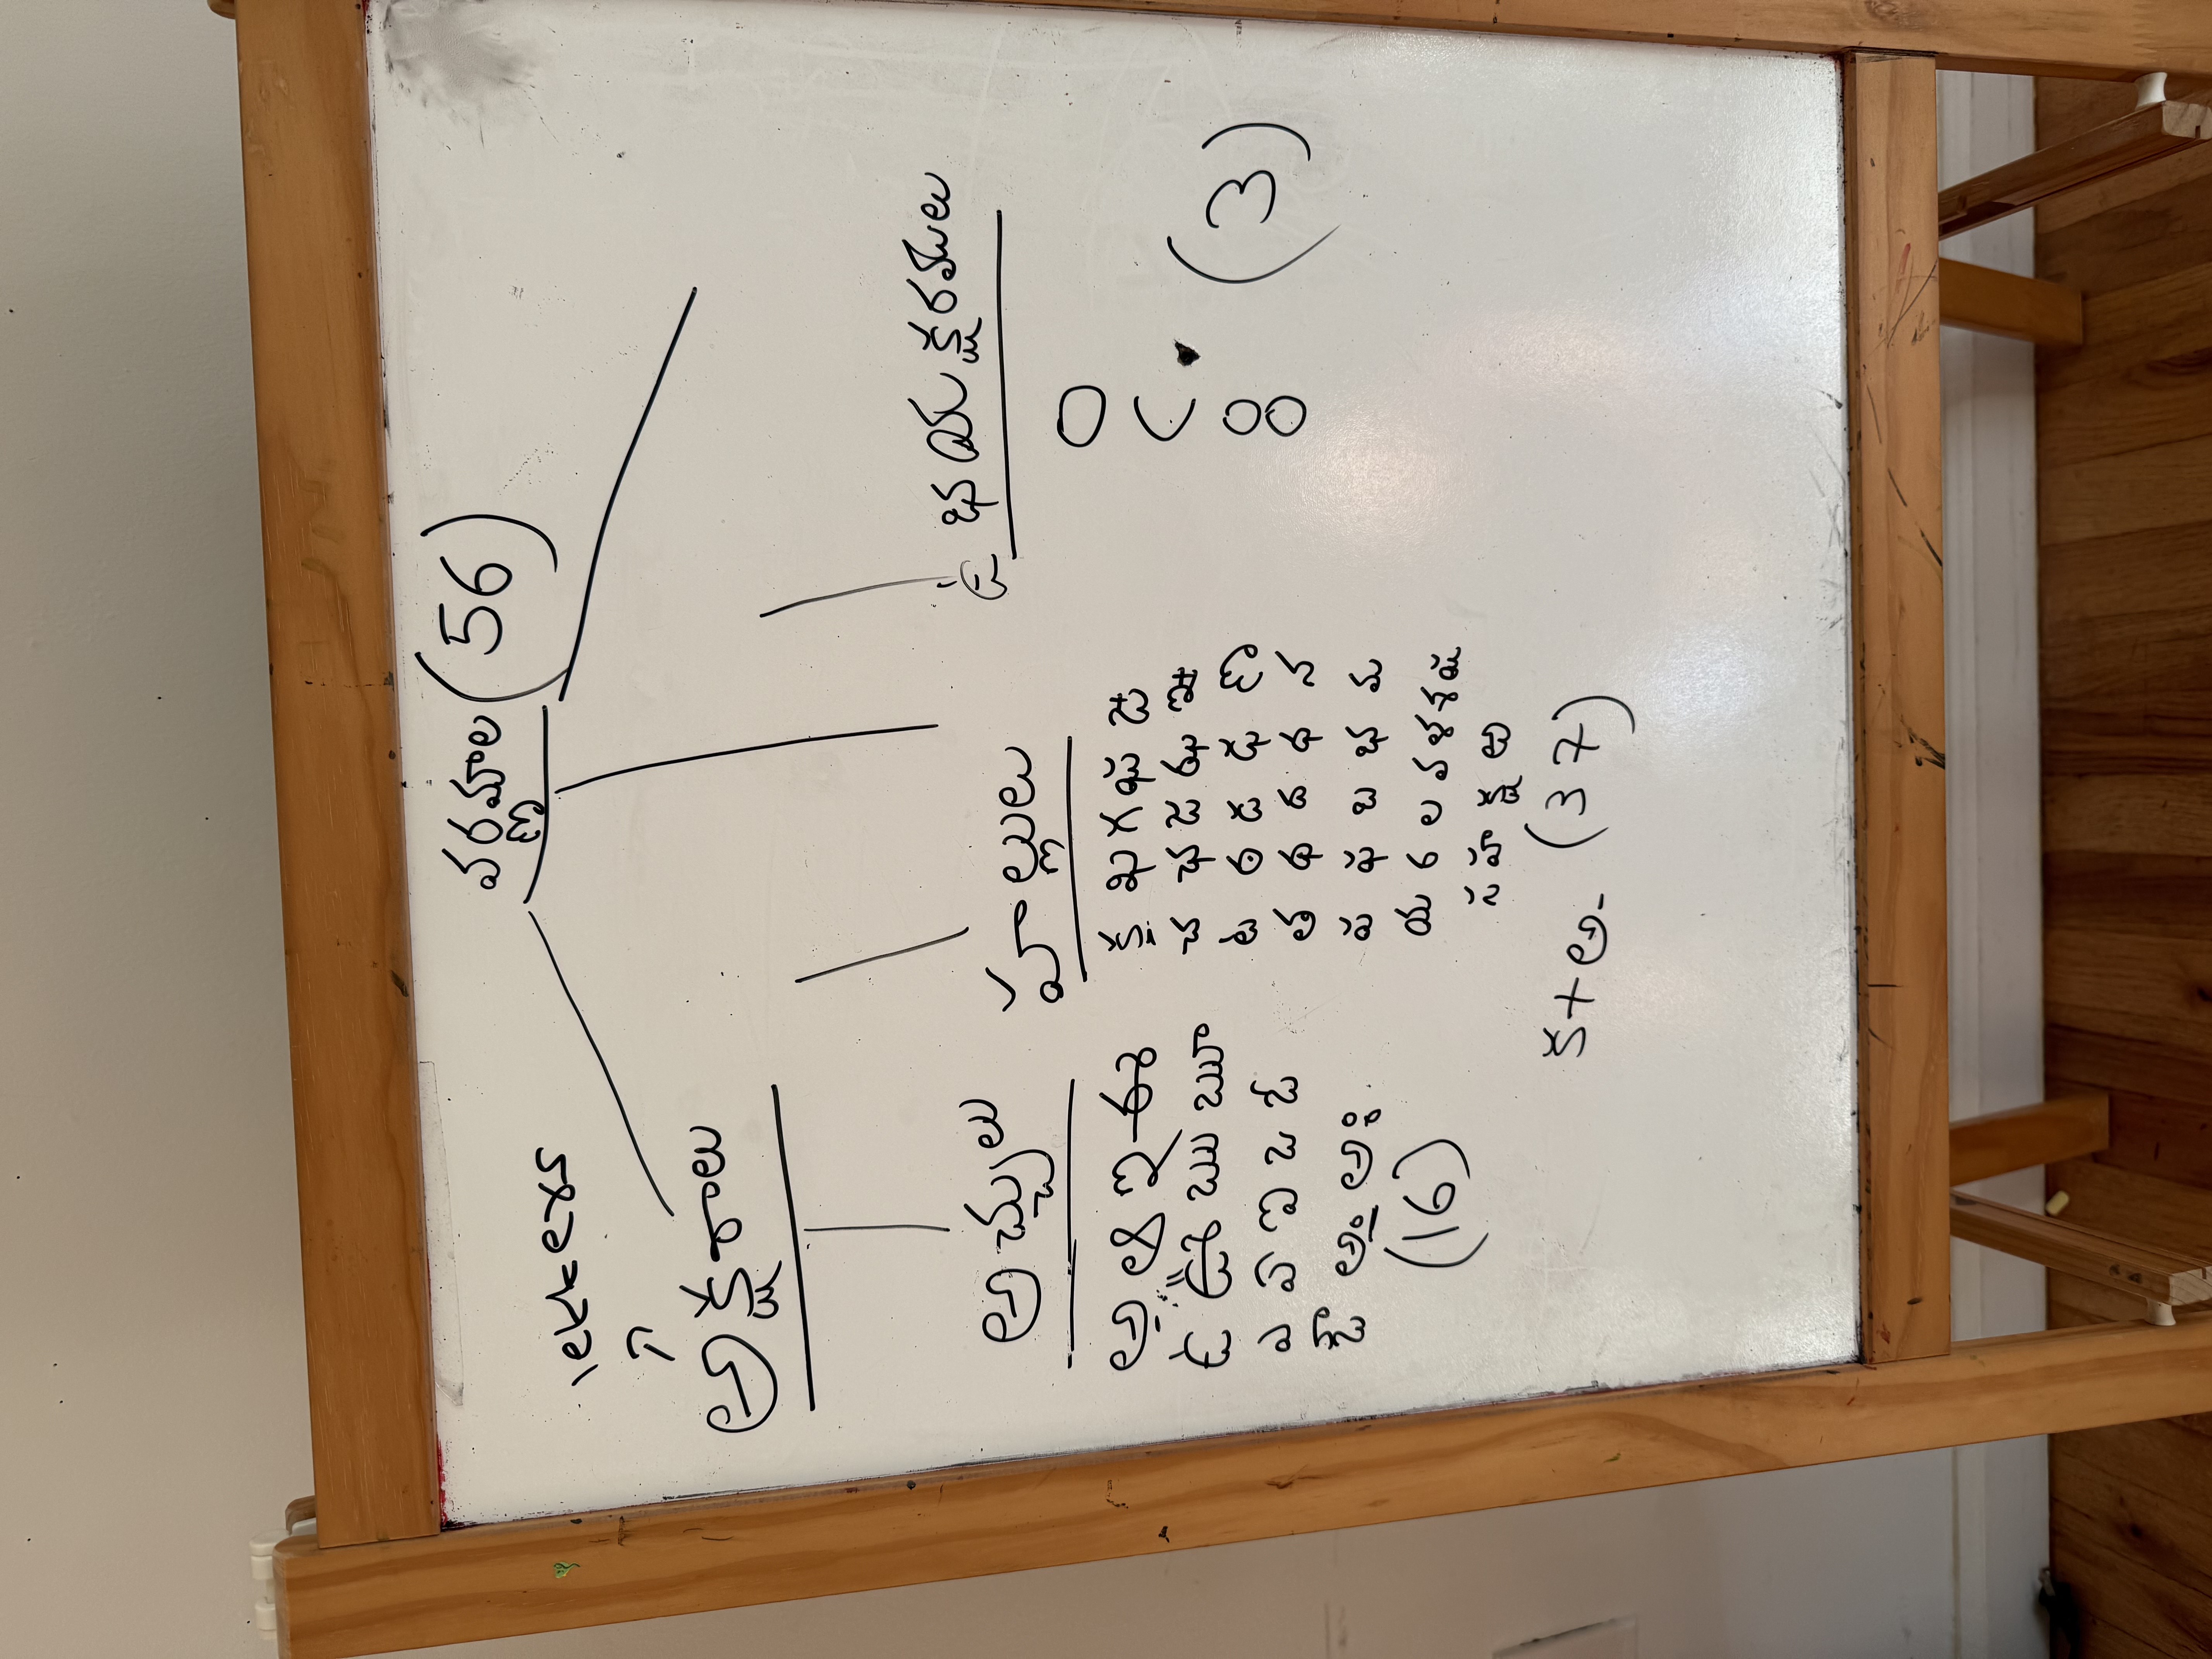 వర్ణమాల (56)
lekkers
అక్షరాలు
అచ్చులు
అ ఆ ఇ ఈ
ఉ ఊ ఋ ౠ
ఎ ఏ ఐ ఒ ఓ
ఔ అం అః
(16)
హల్లులు
క ఖ గ ఘ ఙ
చ ఛ జ ఝ ఞ
ట ఠ డ ఢ ణ
త థ ద ధ న
ప ఫ బ భ మ
య ర ల వ ళ శ ష
స హ క్ష ఱ
క+అ- (37)
ఉభయక్షరములు
ం
ఁ
ః
(3)